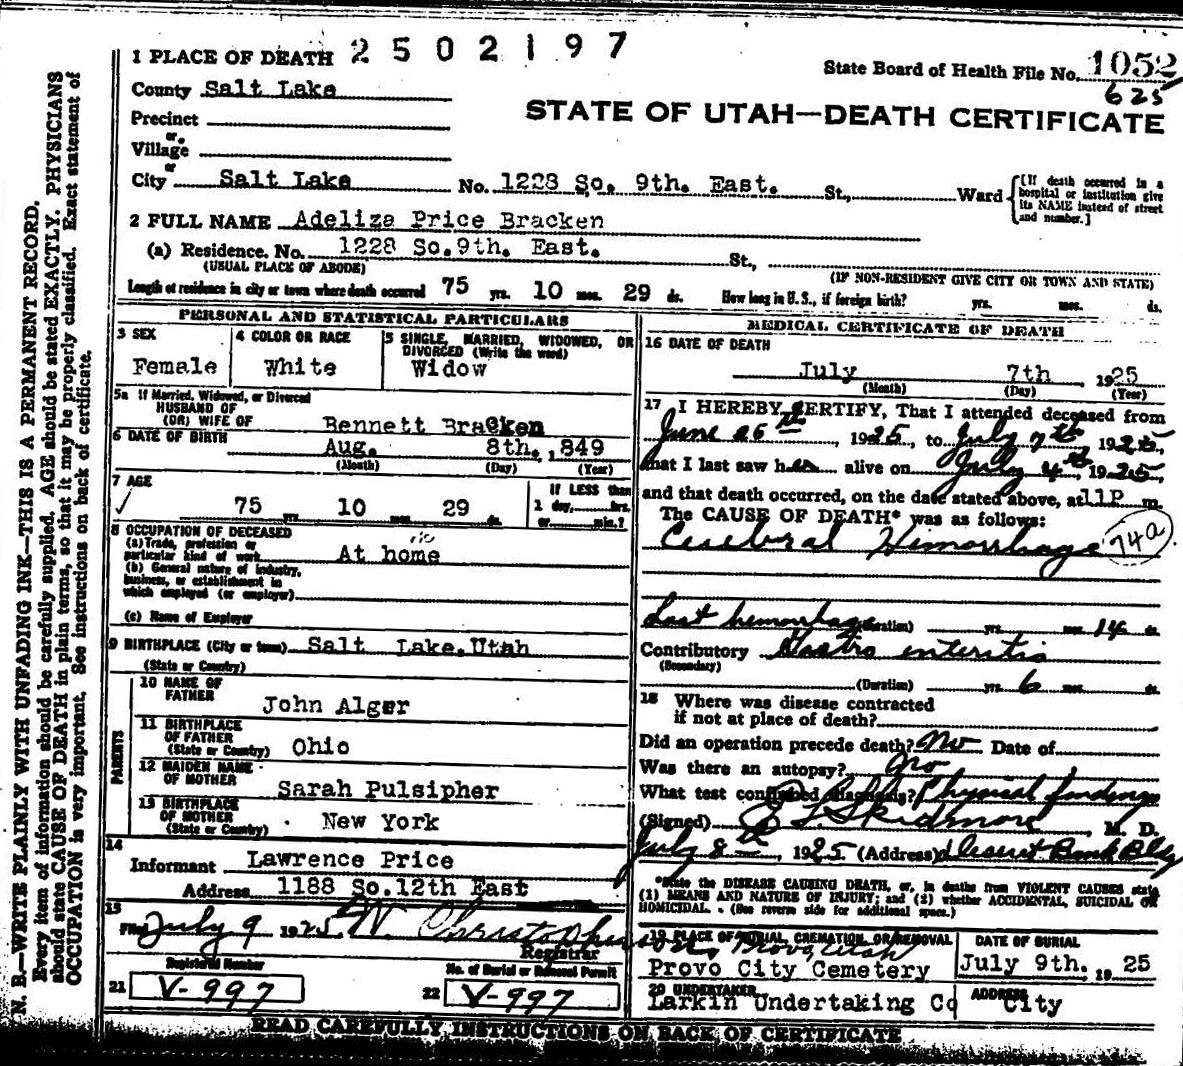 1 PLACE OF DEATH 2502197
State Board of Health File No. 1052
625
County Salt Lake
STATE OF UTAH—DEATH CERTIFICATE
Precinct
or
Village
or
City Salt Lake No. 1228 So. 9th. East. St., Ward
[If death occurred in a hospital or institution give its NAME instead of street and number.]
2 FULL NAME Adeliza Price Bracken
(a) Residence. No. 1228 So.9th. East. St.,
(USUAL PLACE OF ABODE) (IF NON-RESIDENT GIVE CITY OR TOWN AND STATE)
Length of residence in city or town where death occurred 75 yrs. 10 mos. 29 ds. How long in U. S., if foreign birth? yrs. mos. ds.
PERSONAL AND STATISTICAL PARTICULARS
3 SEX
Female
4 COLOR OR RACE
White
5 SINGLE, MARRIED, WIDOWED, OR
DIVORCED (Write the word)
Widow
5a If Married, Widowed, or Divorced
HUSBAND OF
(OR) WIFE OF Bennett Bracken
6 DATE OF BIRTH Aug. 8th. ,849
(Month) (Day) (Year)
7 AGE
75 yrs. 10 mos. 29 ds.
If LESS than
1 day, hrs.
or min.?
8 OCCUPATION OF DECEASED
(a) Trade, profession or
particular kind of work At home
(b) General nature of industry,
business, or establishment in
which employed (or employer)
(c) Name of Employer
9 BIRTHPLACE (City or town) Salt Lake,Utah
(State or Country)
PARENTS
10 NAME OF
FATHER John Alger
11 BIRTHPLACE
OF FATHER
(State or Country) Ohio
12 MAIDEN NAME
OF MOTHER Sarah Pulsipher
13 BIRTHPLACE
OF MOTHER
(State or Country) New York
14
Informant Lawrence Price
Address 1188 So.12th East
15
Filed July 9 1925 W Christophers
Registrar
Registered Number
21 V-997
No. of Burial or Removal Permit
22 V-997
MEDICAL CERTIFICATE OF DEATH
16 DATE OF DEATH
July 7th , 1925
(Month) (Day) (Year)
17 I HEREBY CERTIFY, That I attended deceased from
June 26th , 1925, to July 7th 1925,
that I last saw her alive on July 4th, 1925,
and that death occurred, on the date stated above, at 11P m.
The CAUSE OF DEATH* was as follows:
Cerebral Himorrhage 74a
Last hemorrhage (Duration) yrs. mos. 14 ds.
Contributory Gastro enteritis
(Secondary)
(Duration) yrs. 6 mos. ds.
18 Where was disease contracted
if not at place of death?
Did an operation precede death? No Date of
Was there an autopsy? No
What test confirmed diagnosis? Physical findings
(Signed) Skidmore, M. D.
July 8th, 1925 (Address) Deseret Bank Bldg
*State the DISEASE CAUSING DEATH, or, in deaths from VIOLENT CAUSES state
(1) MEANS AND NATURE OF INJURY; and (2) whether ACCIDENTAL, SUICIDAL OR
HOMICIDAL. (See reverse side for additional space.)
19 PLACE OF BURIAL, CREMATION, OR REMOVAL
Provo, Utah
Provo City Cemetery
DATE OF BURIAL
July 9th. 19 25
20 UNDERTAKER
Larkin Undertaking Co
ADDRESS
City
READ CAREFULLY INSTRUCTIONS ON BACK OF CERTIFICATE
N. B.—WRITE PLAINLY WITH UNFADING INK—THIS IS A PERMANENT RECORD.
Every item of information should be carefully supplied. AGE should be stated EXACTLY. PHYSICIANS
should state CAUSE OF DEATH in plain terms, so that it may be properly classified. Exact statement of
OCCUPATION is very important. See instructions on back of certificate.